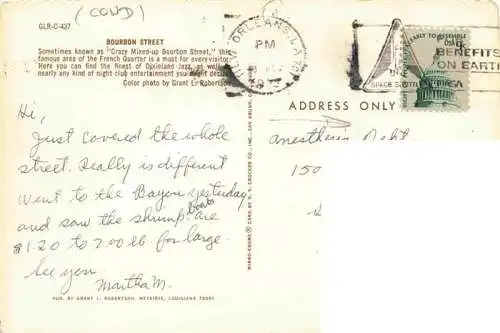 (COVD)
GLR-C-427
BOURBON STREET
Sometimes known as "Crazy Mixed-up Bourbon Street," this
famous area of the French Quarter is a must for every visitor.
Here you can find the finest of Dixieland Jazz, as well as
nearly any kind of night club entertainment you might desire.
Color photo by Grant L. Robertson
NEW ORLEANS, LA
PM
BENEFITS
ON EARTH
SPACE
ADDRESS ONLY
Hi,
Just covered the whole
street. Really is different
Went to the Bayou yesterday
and saw the shrimp boats are
$1.20 to 2.00 lb. for large.
See you.
Martha M.
Anesthesia Dept
150
PUB. BY GRANT L. ROBERTSON, METAIRIE, LOUISIANA 70001